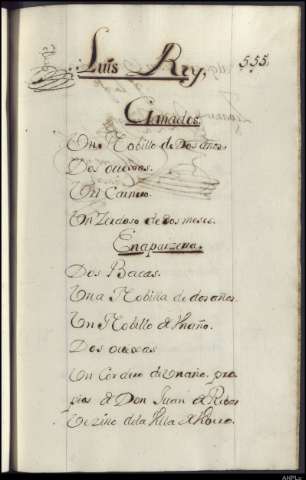 555
Luis Rey,
Ganados.
Un Nobillo de dos años.
Dos ovexas.
Un Carnero.
Un Zerdoso de dos meses.
En aparzeria.
Dos Bacas.
Una Nobilla de dos años.
Un Nobillo de Un año.
Dos ovexas
Un Cordero de Un año. pro
pios de Don Juan de
Vezino de la Villa de
AHPLe